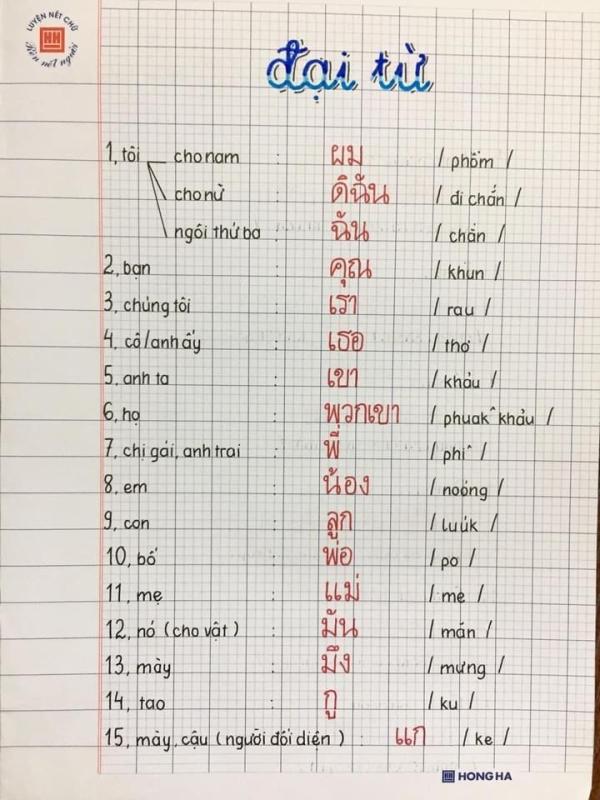 LUYỆN NÉT CHỮ
HH
Rèn nết người
đại từ
1, tôi cho nam : ผม / phổm /
cho nữ : ดิฉัน / di chắn /
ngôi thứ ba : ฉัน / chăn /
2, bạn : คุณ / khun /
3, chúng tôi : เรา / rau /
4, cô/anh ấy : เธอ / thơ /
5, anh ta : เขา / khảu /
6, họ : พวกเขา / phuak^ khảu /
7, chị gái, anh trai : พี่ / phi^ /
8, em : น้อง / noóng /
9, con : ลูก / luúk /
10, bố : พ่อ / po /
11, mẹ : แม่ / me /
12, nó (cho vật) : มัน / măn /
13, mày : มึง / mưng /
14, tao : กู / ku /
15, mày, cậu (người đối diện) : แก / ke /
HONG HA